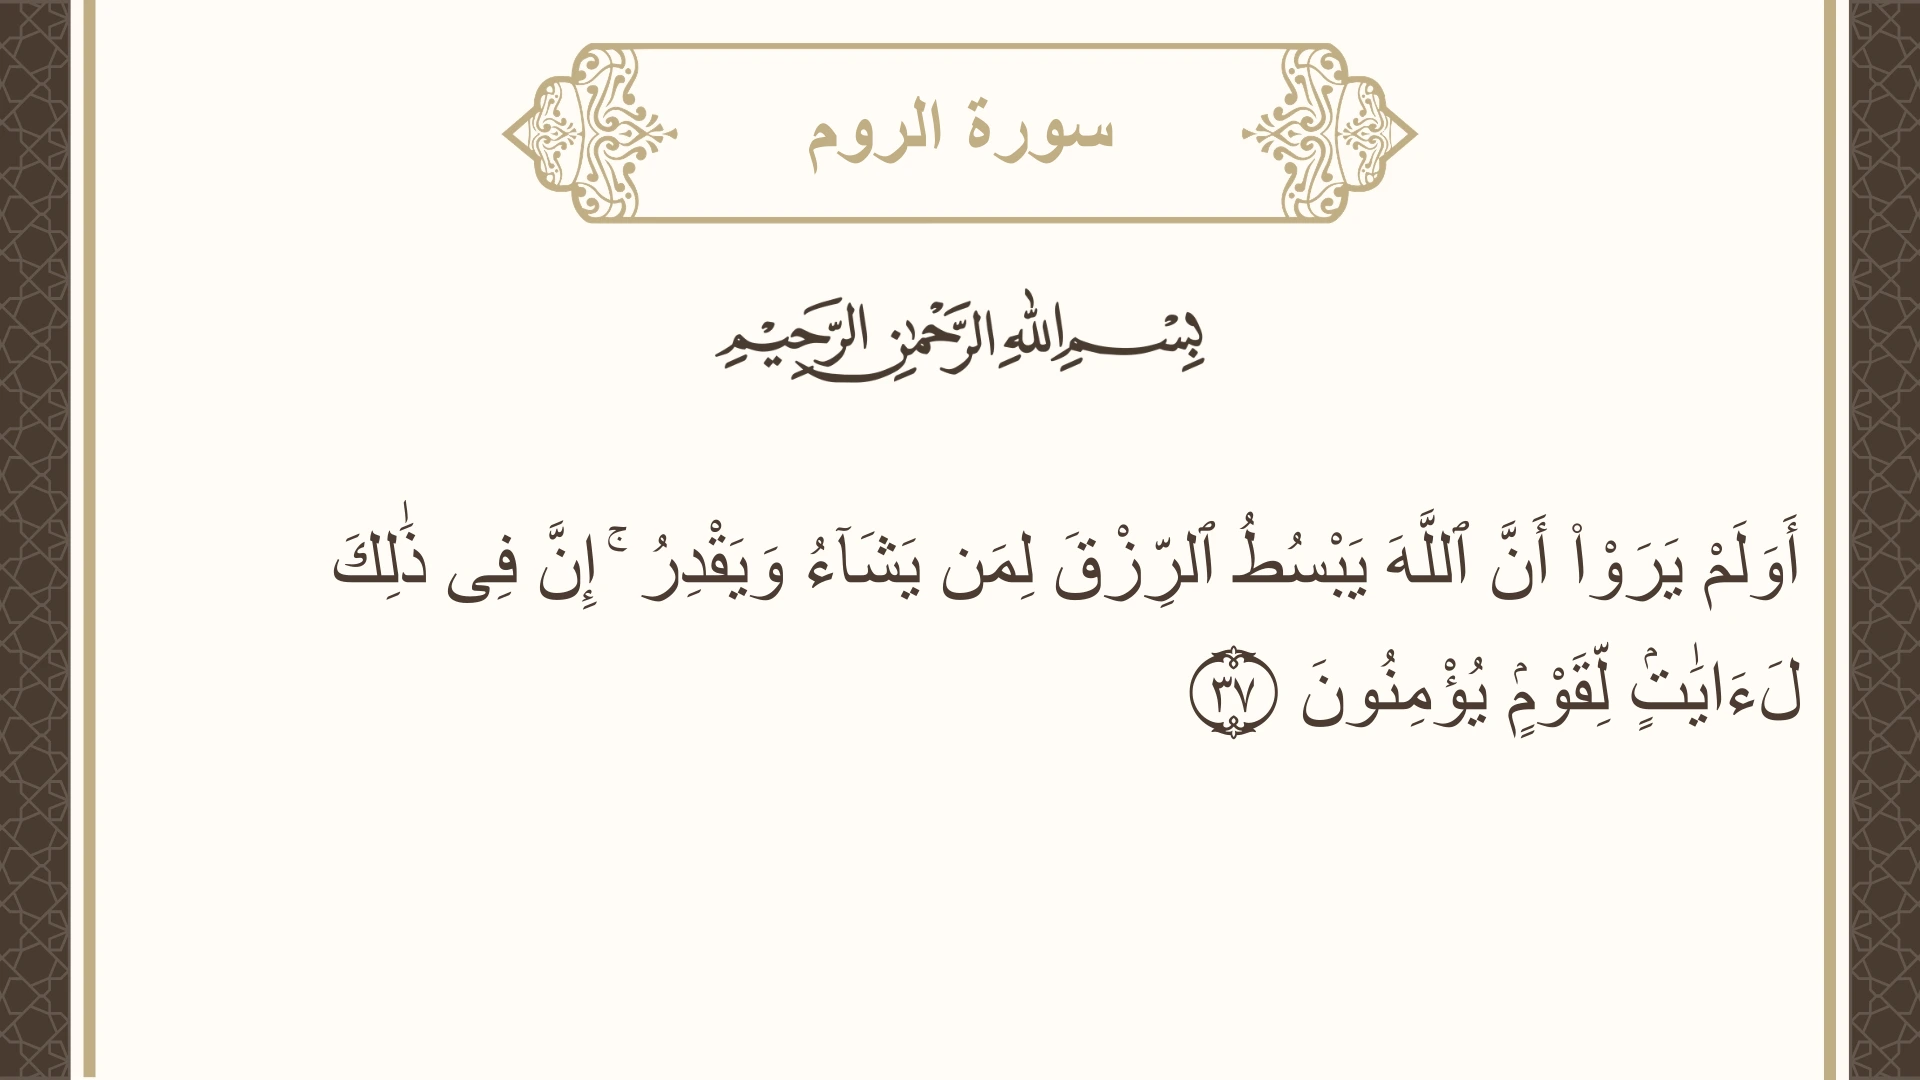 سورة الروم
بِسْمِ اللهِ الرَّحْمٰنِ الرَّحِيْمِ
أَوَلَمْ يَرَوْا۟ أَنَّ ٱللَّهَ يَبْسُطُ ٱلرِّزْقَ لِمَن يَشَآءُ وَيَقْدِرُ ۚ إِنَّ فِى ذَٰلِكَ
لَـَٔايَـٰتٍۢ لِّقَوْمٍۢ يُؤْمِنُونَ ٣٧